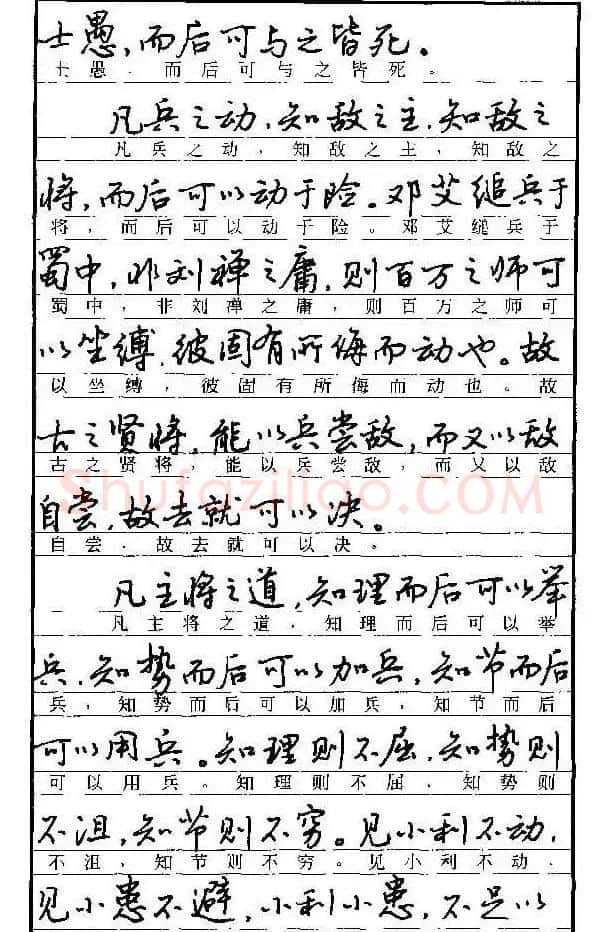 士愚，而后可与之皆死。
士愚，而后可与之皆死。
凡兵之动，知敌之主，知敌之
凡兵之动，知敌之主，知敌之
将，而后可以动于险。邓艾缒兵于
将，而后可以动于险。邓艾缒兵于
蜀中，非刘禅之庸，则百万之师可
蜀中，非刘禅之庸，则百万之师可
以坐缚，彼固有所侮而动也。故
以坐缚，彼固有所侮而动也。故
古之贤将，能以兵尝敌，而又以敌
古之贤将，能以兵尝敌，而又以敌
Shufaziliao.COM
自尝，故去就可以决。
自尝，故去就可以决。
凡主将之道，知理而后可以举
凡主将之道，知理而后可以举
兵，知势而后可以加兵，知节而后
兵，知势而后可以加兵，知节而后
可以用兵。知理则不屈，知势则
可以用兵。知理则不屈，知势则
不沮，知节则不穷。见小利不动，
不沮，知节则不穷。见小利不动，
见小患不避，小利小患，不足以